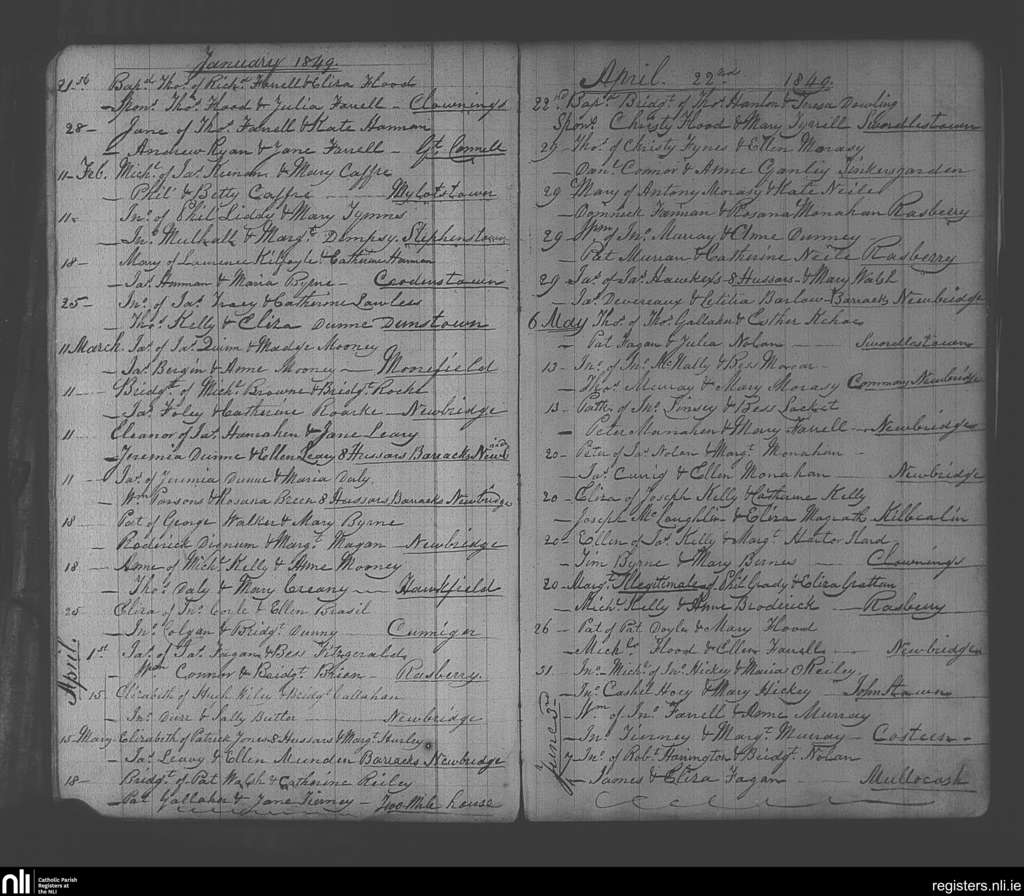 January 1849.
21st Bapd. Thos. of Richd. Farrell & Eliza Flood
Spons. Thos. Flood & Julia Farrell - Clownings
28 - Jane of Thos. Farrell & Kate Hannon
- Andrew Ryan & Jane Farrell - Gt. Connell
11 Feb. Michl. of Jas. Keenan & Mary Caffre
- Phil & Betty Caffre - Mylotstown
11 - Jno. of Phil Liddy & Mary Tymns
- Jno. Mulhall & Margt. Dempsy. Stephenstown
18 - Mary of Laurence Kilfoyle & Catherine Hannon
- Jas. Hannan & Maria Byrne -
25 - Jno. of Jas. Tracy & Catherine Lawless
- Thos. Kelly & Eliza Dunne Dunstown
11 March. Jas. of Jas. Quinn & Madge Mooney
- Jas. Bergin & Anne Mooney - Moorefield
11 - Bridgt. of Michl. Browne & Bridgt. Roche
- Jas. Foley & Catherine Roarke - Newbridge
11 - Eleanor of Jas. Hanrahen & Jane Leary
- Jeremia Dunne & Ellen Leary 8 Hussars Barracks
11 - Jas. of Jerimia Dunne & Maria Daly.
- Wm. Parsons & Rosana Breen 8 Hussars, Barracks Newbridge
18 - Pat of George Walker & Mary Byrne
- Roderick Dignum & Margt. Magan - Newbridge
18 - Anne of Michl. Kelly & Anne Mooney
- Thos. Daly & Mary Creany - Hawkfield
25 Eliza of Jno. Coyle & Ellen Brasil
- Jno. Colgan & Bridgt. Dunny Cunniger
April. 1st Jas. of Jas. Fagan & Bess Fitzgerald
- Wm. Connor & Bridgt. Brien - Rasberry.
15 - Elizabeth of Hugh Riley & Bridgt. Callahan
- Jno. & Sally Butler Newbridge
15 - Elizabeth of Patrick Jones 8 Hussars & Margt. Hurley
- Jas. Leavy & Ellen Barracks Newbridge
18 - Bridgt. of Pat Walsh & Catherine Reiley
- Pat Gallaher & Jane Tierney - Two Mile house
April. 22nd 1849.
22nd. Bapd. Bridgt. of Thos. Hanlon & Teresa Dowling
Spons. Christy Flood & Mary Tyrrell Swordlestown
29 - Thos. of Christy Fynes & Ellen Morasy
- Danl. Connor & Anne Ganley Tinkersgarden
29 Mary of Antony Morasy & Kate Neiles
- Dominick Farman & Rosana Monahan Rasberry
29 - Wm. of Jno. Murray & Anne Dunney
- Pat Murran & Catherine Neite Rasberry
29 - Jas. of Jas. Hawkexs - 8 Hussars - & Mary Walsh
- Jas. Devereaux & Letitia Barlow - Barracks Newbridge
6 May Thos. of Thos. Gallaher & Esther Kehoe
- Pat Fagan & Julia Nolan - Swordlestown
13 - Jno. of Jno. McNally & Bess
- Thos. Murray & Mary Morasy Common Newbridge
13 - Patk. of Jno. Linsey & Bess Lackit
- Peter Manahan & Mary Farrell - Newbridge
20 - Peter of Jas. Nolan & Margt. Monahan -
- Jas. Currig & Ellen Monahan - Newbridge
20 - Eliza of Joseph Kelly & Catherine Kelly
- Joseph McLoughlin & Eliza Magrath Kilbealin
20 - Ellen of Jas. Kelly & Margt.
- Jim Byrne & Mary Bernes - Clownings
20 - Margt. Illegitimate of Phil Grady & Eliza Grattan
- Michl. Kelly & Anne Broderick - Rasberry
26 - Pat of Pat Doyle & Mary Flood
- Michl. Flood & Ellen Farrell - Newbridge
31 - Jno. Michl. of Jno. Hickey & Maria O Reiley
- Jno. Cashel Hoey & Mary Hickey - Johnstown
June 3rd - Wm. of Jno. Farrell & Anne Murray
- Jno. Tierney & Margt. Murray - Costeen -
7 - Jno. of Robt. Harington & Bridgt. Nolan
- James & Eliza Fagan - Mullacash
nli
Catholic Parish
Registers at
the NLI
registers.nli.ie